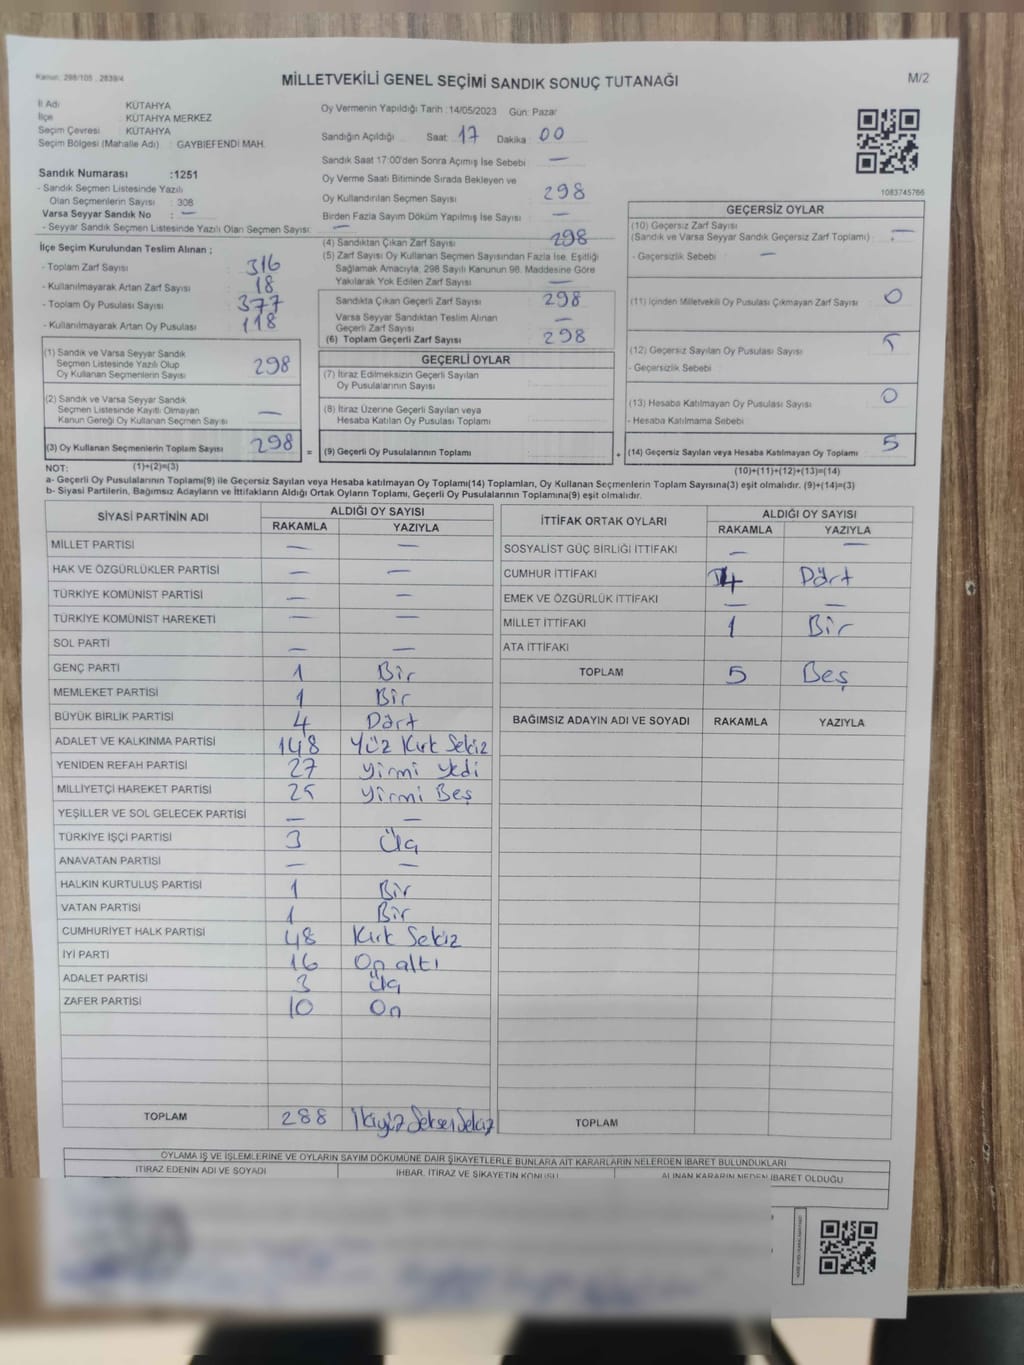 Kanun: 298/105 , 2839/4
MİLLETVEKİLİ GENEL SEÇİMİ SANDIK SONUÇ TUTANAĞI
M/2
İl Adı : KÜTAHYA
İlçe : KÜTAHYA MERKEZ
Seçim Çevresi : KÜTAHYA
Seçim Bölgesi (Mahalle Adı) : GAYBİEFENDİ MAH.
Sandık Numarası :1251
- Sandık Seçmen Listesinde Yazılı
Olan Seçmenlerin Sayısı : 308
Varsa Seyyar Sandık No : —
- Seyyar Sandık Seçmen Listesinde Yazılı Olan Seçmen Sayısı: —
Oy Vermenin Yapıldığı Tarih :14/05/2023 Gün: Pazar
Sandığın Açıldığı Saat: 17 Dakika : 00
Sandık Saat 17:00'den Sonra Açılmış İse Sebebi —
Oy Verme Saati Bitiminde Sırada Bekleyen ve
Oy Kullandırılan Seçmen Sayısı 298
Birden Fazla Sayım Döküm Yapılmış İse Sayısı : —
1083745766
İlçe Seçim Kurulundan Teslim Alınan ;
- Toplam Zarf Sayısı : 316
- Kullanılmayarak Artan Zarf Sayısı : 18
- Toplam Oy Pusulası Sayısı : 377
- Kullanılmayarak Artan Oy Pusulası : 118
(1) Sandık ve Varsa Seyyar Sandık
Seçmen Listesinde Yazılı Olup
Oy Kullanan Seçmenlerin Sayısı 298
(2) Sandık ve Varsa Seyyar Sandık
Seçmen Listesinde Kayıtlı Olmayan
Kanun Gereği Oy Kullanan Seçmen Sayısı —
(3) Oy Kullanan Seçmenlerin Toplam Sayısı 298 =
(1)+(2)=(3)
(4) Sandıktan Çıkan Zarf Sayısı 298
(5) Zarf Sayısı Oy Kullanan Seçmen Sayısından Fazla İse, Eşitliği
Sağlamak Amacıyla, 298 Sayılı Kanunun 98. Maddesine Göre
Yakılarak Yok Edilen Zarf Sayısı —
Sandıkta Çıkan Geçerli Zarf Sayısı 298
Varsa Seyyar Sandıktan Teslim Alınan
Geçerli Zarf Sayısı —
(6) Toplam Geçerli Zarf Sayısı 298
GEÇERLİ OYLAR
(7) İtiraz Edilmeksizin Geçerli Sayılan
Oy Pusulalarının Sayısı
(8) İtiraz Üzerine Geçerli Sayılan veya
Hesaba Katılan Oy Pusulası Toplamı
(9) Geçerli Oy Pusulalarının Toplamı +
GEÇERSİZ OYLAR
(10) Geçersiz Zarf Sayısı
(Sandık ve Varsa Seyyar Sandık Geçersiz Zarf Toplamı) : —
- Geçersizlik Sebebi : —
(11) İçinden Milletvekili Oy Pusulası Çıkmayan Zarf Sayısı : 0
(12) Geçersiz Sayılan Oy Pusulası Sayısı : 5
- Geçersizlik Sebebi
(13) Hesaba Katılmayan Oy Pusulası Sayısı : 0
- Hesaba Katılmama Sebebi
(14) Geçersiz Sayılan veya Hesaba Katılmayan Oy Toplamı 5
(10)+(11)+(12)+(13)=(14)
NOT:
a- Geçerli Oy Pusulalarının Toplamı(9) ile Geçersiz Sayılan veya Hesaba katılmayan Oy Toplamı(14) Toplamları, Oy Kullanan Seçmenlerin Toplam Sayısına(3) eşit olmalıdır. (9)+(14)=(3)
b- Siyasi Partilerin, Bağımsız Adayların ve İttifakların Aldığı Ortak Oyların Toplamı, Geçerli Oy Pusulalarının Toplamına(9) eşit olmalıdır.
SİYASİ PARTİNİN ADI ALDIĞI OY SAYISI
RAKAMLA YAZIYLA
MİLLET PARTİSİ — —
HAK VE ÖZGÜRLÜKLER PARTİSİ — —
TÜRKİYE KOMÜNİST PARTİSİ — —
TÜRKİYE KOMÜNİST HAREKETİ — —
SOL PARTİ — —
GENÇ PARTİ 1 Bir
MEMLEKET PARTİSİ 1 Bir
BÜYÜK BİRLİK PARTİSİ 4 Dört
ADALET VE KALKINMA PARTİSİ 148 Yüz Kırk Sekiz
YENİDEN REFAH PARTİSİ 27 Yirmi Yedi
MİLLİYETÇİ HAREKET PARTİSİ 25 Yirmi Beş
YEŞİLLER VE SOL GELECEK PARTİSİ — —
TÜRKİYE İŞÇİ PARTİSİ 3 Üç
ANAVATAN PARTİSİ — —
HALKIN KURTULUŞ PARTİSİ 1 Bir
VATAN PARTİSİ 1 Bir
CUMHURİYET HALK PARTİSİ 48 Kırk Sekiz
İYİ PARTİ 16 On altı
ADALET PARTİSİ 3 Üç
ZAFER PARTİSİ 10 On
TOPLAM 288 İkiyüz Seksen Sekiz
İTTİFAK ORTAK OYLARI ALDIĞI OY SAYISI
RAKAMLA YAZIYLA
SOSYALİST GÜÇ BİRLİĞİ İTTİFAKI — —
CUMHUR İTTİFAKI 4 Dört
EMEK VE ÖZGÜRLÜK İTTİFAKI — —
MİLLET İTTİFAKI 1 Bir
ATA İTTİFAKI
TOPLAM 5 Beş
BAĞIMSIZ ADAYIN ADI VE SOYADI RAKAMLA YAZIYLA
TOPLAM
OYLAMA İŞ VE İŞLEMLERİNE VE OYLARIN SAYIM DÖKÜMÜNE DAİR ŞİKAYETLERLE BUNLARA AİT KARARLARIN NELERDEN İBARET BULUNDUKLARI
İTİRAZ EDENİN ADI VE SOYADI İHBAR, İTİRAZ VE ŞİKAYETİN KONUSU ALINAN KARARIN NEDEN İBARET OLDUĞU